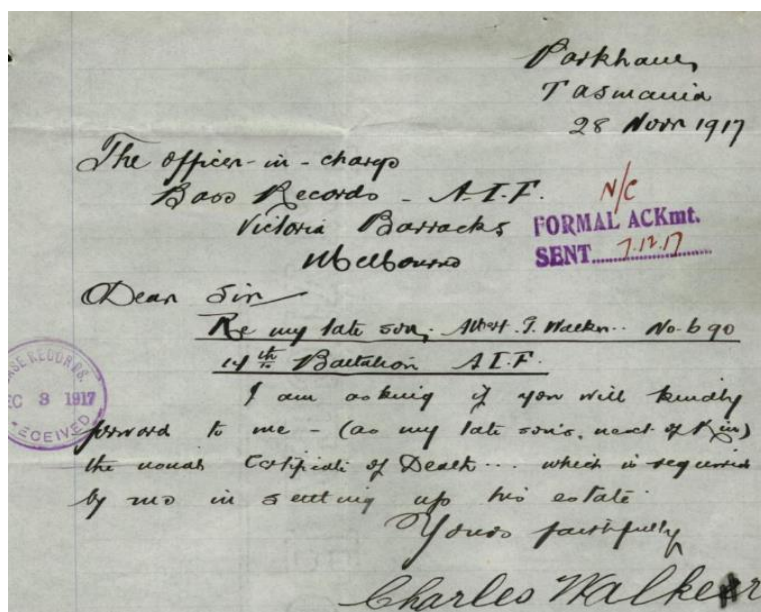 Parkham
Tasmania
28 Novr 1917
The officer-in-charge
Base Records - A.I.F.
Victoria Barracks
Melbourne
N/C
FORMAL ACKmt.
SENT 7.12.17
Dear Sir
Re my late son, Albert G. Walker.. No. 690
14th Battalion A.I.F.
I am asking if you will kindly
forward to me - (as my late son's, next of Kin)
the usual Certificate of Death... which is required
by me in settling up his estate.
Yours faithfully
Charles Walker
BASE RECORDS.
DEC 3 1917
RECEIVED